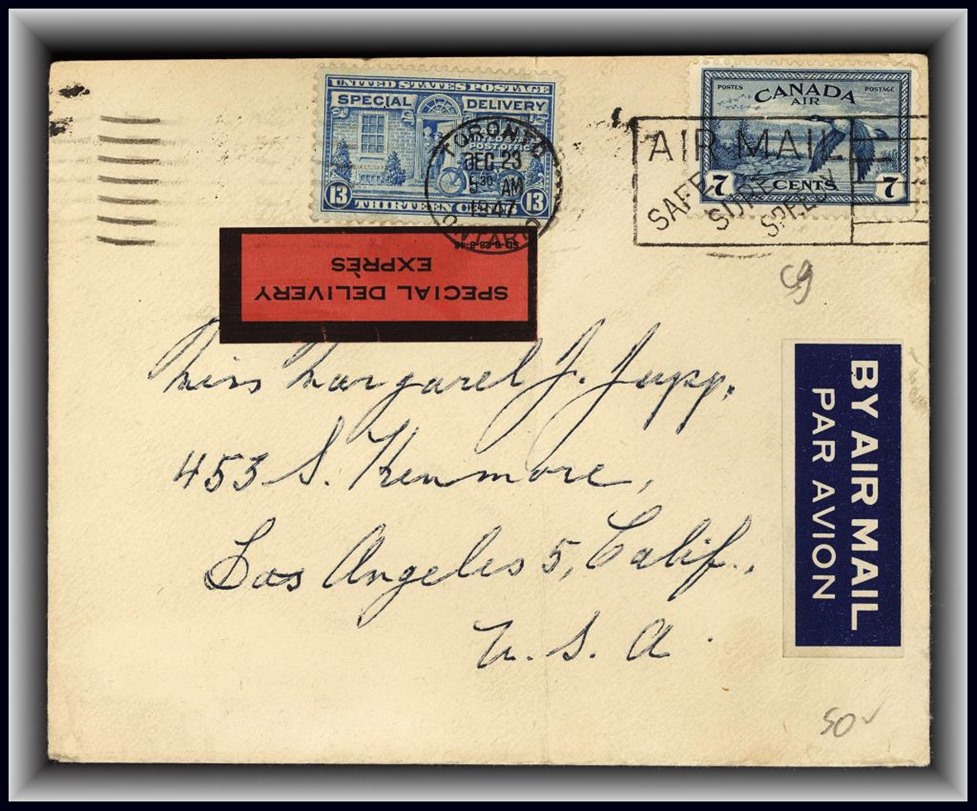 UNITED STATES POSTAGE
SPECIAL DELIVERY
AT ANY U.S.
POST OFFICE
13 THIRTEEN CENTS 13
TORONTO
DEC 23
5 30 AM
1947
ONTARIO
POSTES POSTAGE
CANADA
AIR
7 CENTS 7
AIR MAIL
SAFE
SURE
SPEEDY
SPECIAL DELIVERY
EXPRÈS
C9
Miss Margaret J. Jupp,
453 S. Kenmore,
Los Angeles 5, Calif.,
U. S. A.
BY AIR MAIL
PAR AVION
50